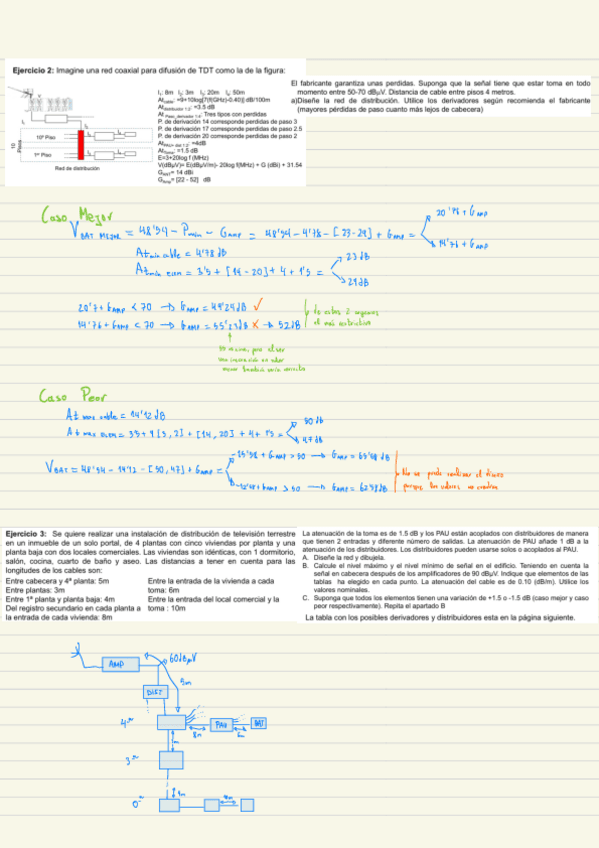 Ejercicio 2: Imagine una red coaxial para difusión de TDT como la de la figura:
l₁: 8m l₂: 3m l₃: 20m l₄: 50m
At_cable: =9+10log[7(f(GHz)-0.40)] dB/100m
At_distribuidor 1:2: =3.5 dB
At_Paso_derivador 1:4: Tres tipos con perdidas
P. de derivación 14 corresponde perdidas de paso 3
P. de derivación 17 corresponde perdidas de paso 2.5
P. de derivación 20 corresponde perdidas de paso 2
At_PAU+ dist 1:2: =4dB
At_Toma: =1.5 dB
E=3+20log f (MHz)
V(dBµV)= E(dBµV/m)- 20log f(MHz) + G (dBi) + 31.54
G_ANT= 14 dBi
G_Amp= [22 - 52] dB
10 Pisos
10º Piso
1ᵉʳ Piso
Red de distribución
El fabricante garantiza unas perdidas. Suponga que la señal tiene que estar toma en todo
momento entre 50-70 dBµV. Distancia de cable entre pisos 4 metros.
a)Diseñe la red de distribución. Utilice los derivadores según recomienda el fabricante
(mayores pérdidas de paso cuanto más lejos de cabecera)
Caso Mejor
V BAT MEJOR = 48'54 - Pmin - GAMP = 48'54 - 4'78 - [23-29] + GAMP =
20'76 + GAMP
14'76 + GAMP
At min cable = 4'78 dB
At min elem = 3'5 + [14-20] + 4 + 1'5 =
23 dB
29 dB
20'7 + GAMP < 70 → GAMP = 49'24 dB ✓
14'76 + GAMP < 70 → GAMP = 55'23 dB ✗ → 52 dB
de estas 2 cogemos
el más restrictivo
Caso Peor
At max cable = 14'12 dB
V BAT = 48'54 - 14'12 - [50, 47] + GAMP =
50 dB
47 dB
No se puede realizar el diseño
porque los valores no cuadran
Ejercicio 3: Se quiere realizar una instalación de distribución de televisión terrestre
en un inmueble de un solo portal, de 4 plantas con cinco viviendas por planta y una
planta baja con dos locales comerciales. Las viviendas son idénticas, con 1 dormitorio,
salón, cocina, cuarto de baño y aseo. Las distancias a tener en cuenta para las
longitudes de los cables son:
Entre cabecera y 4ª planta: 5m
Entre plantas: 3m
Entre 1ª planta y planta baja: 4m
Del registro secundario en cada planta a
la entrada de cada vivienda: 8m
Entre la entrada de la vivienda a cada
toma: 6m
Entre la entrada del local comercial y la
toma : 10m
La atenuación de la toma es de 1.5 dB y los PAU están acoplados con distribuidores de manera
que tienen 2 entradas y diferente número de salidas. La atenuación de PAU añade 1 dB a la
atenuación de los distribuidores. Los distribuidores pueden usarse solos o acoplados al PAU.
A. Diseñe la red y dibujela.
B. Calcule el nivel máximo y el nivel mínimo de señal en el edificio. Teniendo en cuenta la
señal en cabecera después de los amplificadores de 90 dBµV. Indique que elementos de las
tablas ha elegido en cada punto. La atenuación del cable es de 0.10 (dB/m). Utilice los
valores nominales.
C. Suponga que todos los elementos tienen una variación de +1.5 o -1.5 dB (caso mejor y caso
peor respectivamente). Repita el apartado B
La tabla con los posibles derivadores y distribuidores esta en la página siguiente.
AMP
60 dBµV
5m
DIST
4º
PAU
BAT
8m
3º
0º